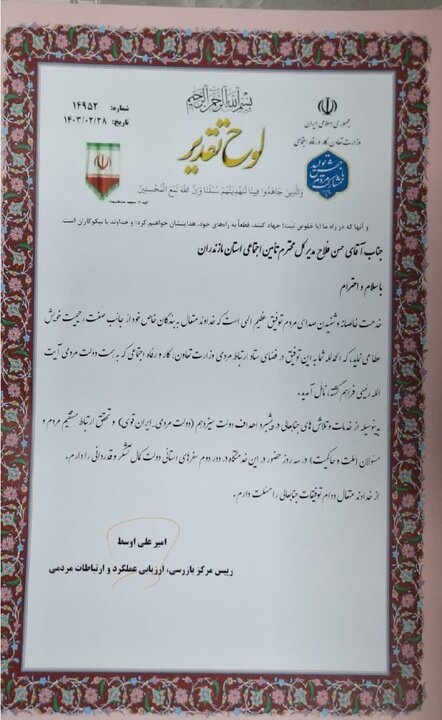 بسم الله الرحمن الرحیم
جمهوری اسلامی ایران
وزارت تعاون، کار و رفاه اجتماعی
شماره: ۱۴۹۵۲
تاریخ: ۱۴۰۳/۰۲/۲۸
لوح تقدیر
وَالَّذِينَ جَاهَدُوا فِينَا لَنَهْدِيَنَّهُمْ سُبُلَنَا وَإِنَّ اللَّهَ لَمَعَ الْمُحْسِنِينَ
و آنها که در راه ما (با خلوص نیت) جهاد کنند، قطعاً به راه‌های خود، هدایتشان خواهیم کرد؛ و خداوند با نیکوکاران است.
جناب آقای حسن فلاح مدیرکل محترم تأمین اجتماعی استان مازندران
با سلام و احترام
خدمت خالصانه و شنیدن صدای مردم توفیق عظیم الهی است که خداوند متعال به بندگان خاص خود از جانب صفت رحیمیت خویش
عطا می نماید، که الحمدلله شما به این توفیق در فضای ستاد ارتباط مردمی وزارت تعاون، کار و رفاه اجتماعی که به همت دولت مردمی آیت
الله رئیسی فراهم گشته، نائل آمدید.
بدینوسیله از خدمات و تلاش های جنابعالی در پیشبرد اهداف دولت سیزدهم (دولت مردمی، ایران قوی) و تحقق ارتباط مستقیم مردم و
مسئولان (ملت و حاکمیت) در سه روز حضور در این خدمتگاه در دور دوم سفرهای استانی دولت کمال تشکر و قدردانی را دارم.
از خداوند متعال دوام توفیقات جنابعالی را مسئلت دارم.
امیر علی اوسط
رییس مرکز بازرسی، ارزیابی عملکرد و ارتباطات مردمی